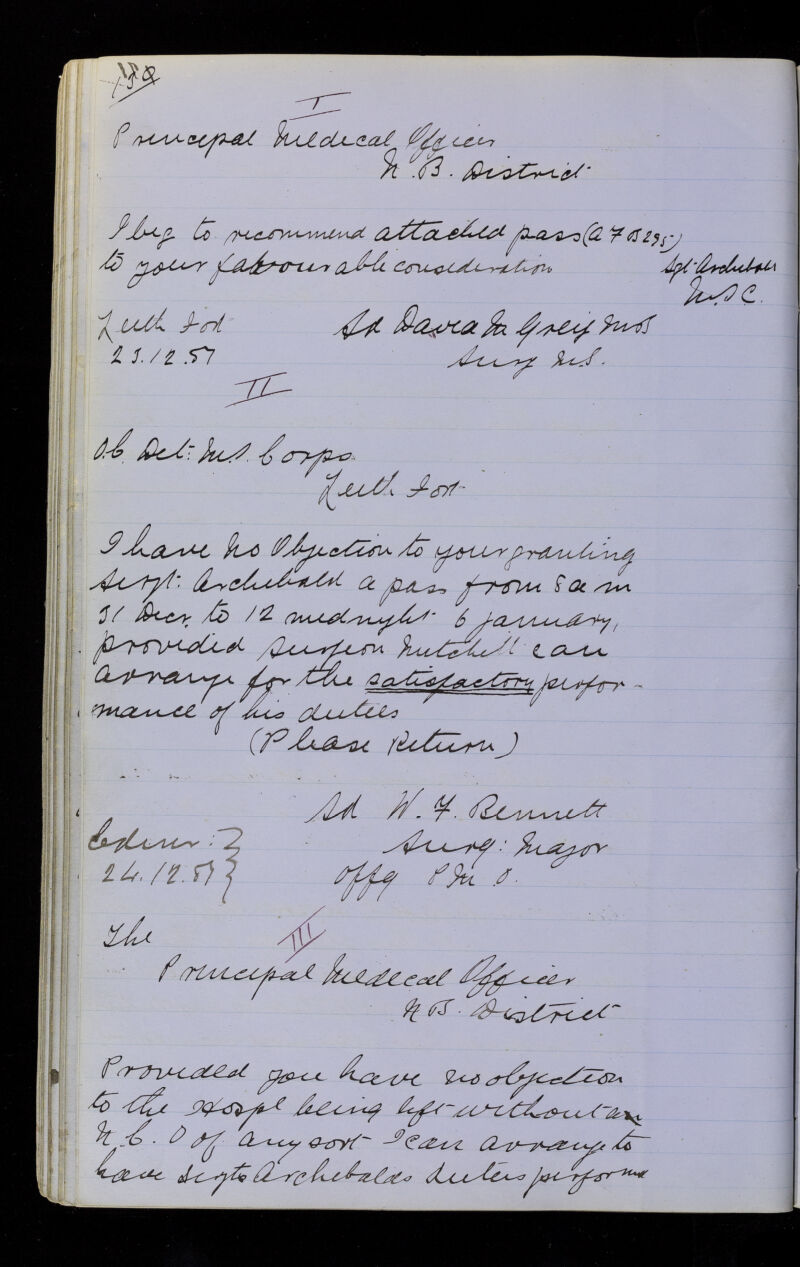 I
Principal Medical Officer
N. B. District
I beg to recommend attached pass (A F B 295)
to your favourable consideration
Sgt Archibald
M.S.C.
Leith Fort
23.12.87
Sd David M Greig MB
Surg M.S.
II
O.C. Det: M.S. Corps
Leith Fort
I have no Objection to your granting
Sergt: Archibald a pass from 8 a m
31 Decr. to 12 midnight 6 January,
provided Surgeon Mitchell can
arrange for the satisfactory perfor-
mance of his duties
(Please Return)
Sd W. F. Bennett
Surg: Major
Offg P M O.
Edinr:
24.12.87
III
The
Principal Medical Officer
N B. District
Provided you have no objection
to the Hospl being left without an
N. C. O of any sort I can arrange to
have Sergts Archibalds duties performd